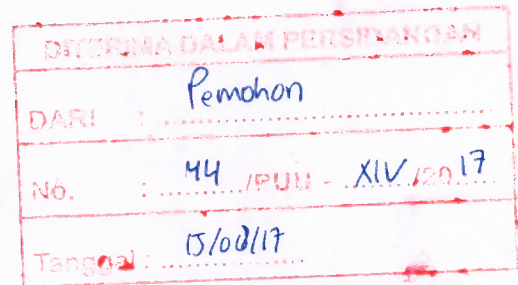 DITERIMA DALAM PERSIDANGAN
DARI : Pemohon
No. : 44 /PUU - XIV /2017
Tanggal :